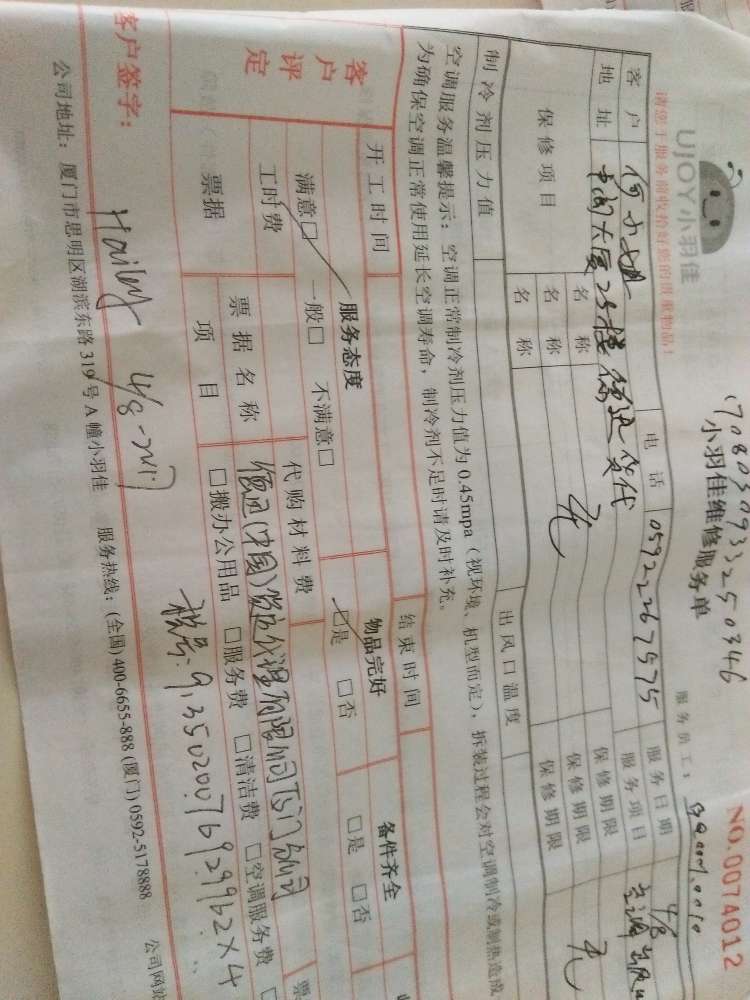 UJOY小羽佳
请您于服务前收拾好您的贵重物品!
小羽佳维修服务单
NO.0074012
服务员工:
客户 何小姐 电话 05922267575 服务日期 4/8
地址 25楼 货代 服务项目 空调
保修项目 名称 无 保修期限 无
名称 保修期限
名称 保修期限
制冷剂压力值 出风口温度
空调服务温馨提示:空调正常制冷剂压力值为0.45mpa(视环境、机型而定),拆装过程会对空调制冷或制热造成
为确保空调正常使用延长空调寿命,制冷剂不足时请及时补充。
开工时间 结束时间
客户评定 服务态度 物品完好 备件齐全
满意□ 一般□ 不满意□ □是 □否 □是 □否
工时费 代购材料费
票据 票据名称 (中国)货运代理有限公司厦门分公司 票
项目 □搬办公用品 □服务费 □清洁费 □空调服务费 □
税号:9135020076929962X4
客户签字: Hailey 4/8-2017
公司地址:厦门市思明区湖滨东路319号A幢小羽佳 服务热线:(全国)400-6655-888 (厦门)0592-5178888 公司网站